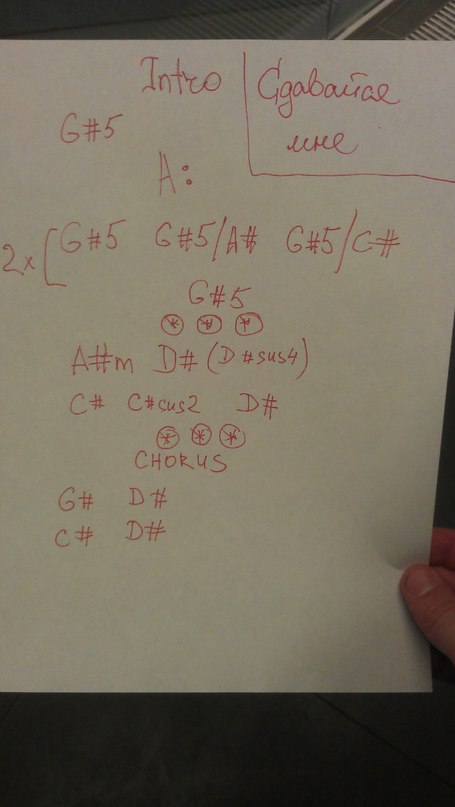 Intro
Сдавайся
мне
G#5
A:
2x [ G#5 G#5/A# G#5/C#
G#5
A#m D# (D#sus4)
C# C#sus2 D#
CHORUS
G# D#
C# D#